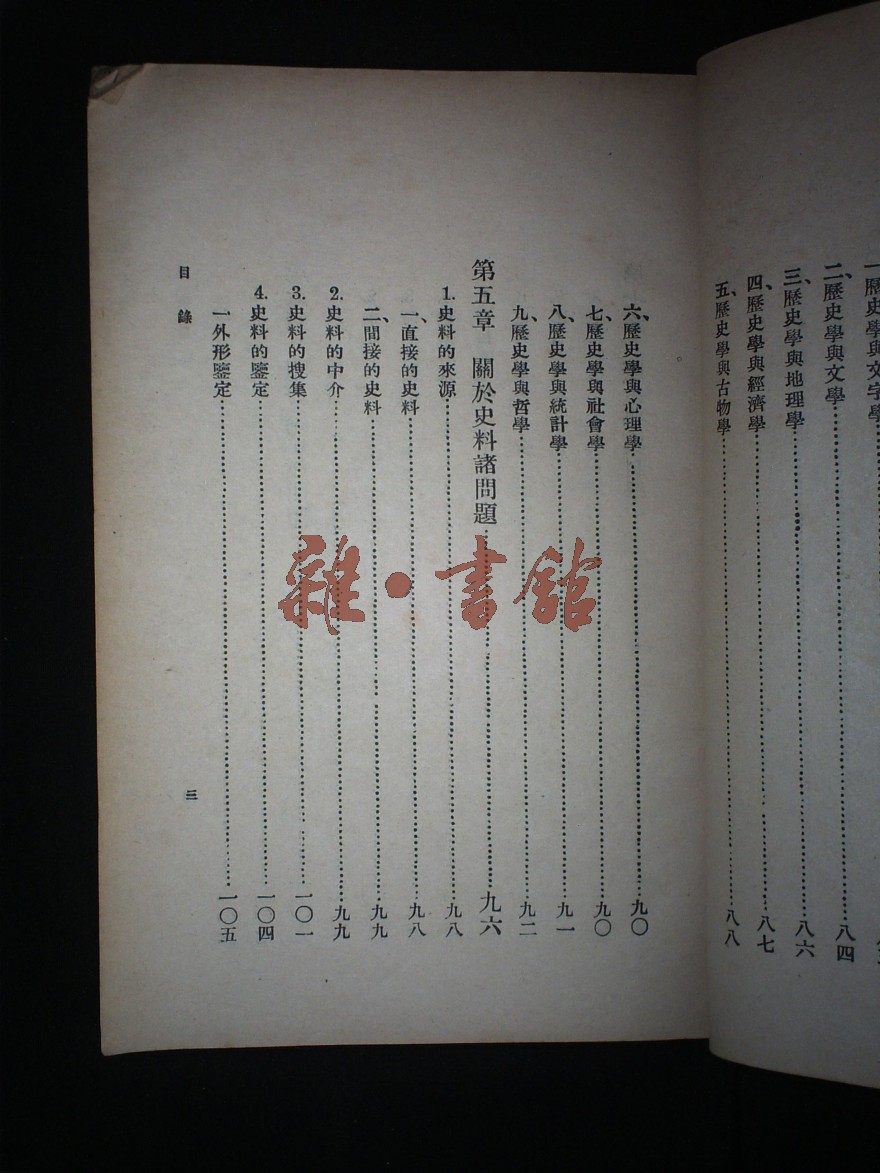 一、歷史學與文字學
二、歷史學與文學……八四
三、歷史學與地理學……八六
四、歷史學與經濟學……八七
五、歷史學與古物學……八八
六、歷史學與心理學……九〇
七、歷史學與社會學……九〇
八、歷史學與統計學……九一
九、歷史學與哲學……九二
第五章 關於史料諸問題……九六
1.史料的來源……九八
一、直接的史料……九八
二、間接的史料……九九
2.史料的中介……九九
3.史料的搜集……一〇一
4.史料的鑒定……一〇四
一外形鑒定……一〇五
目錄
三
雜·書館